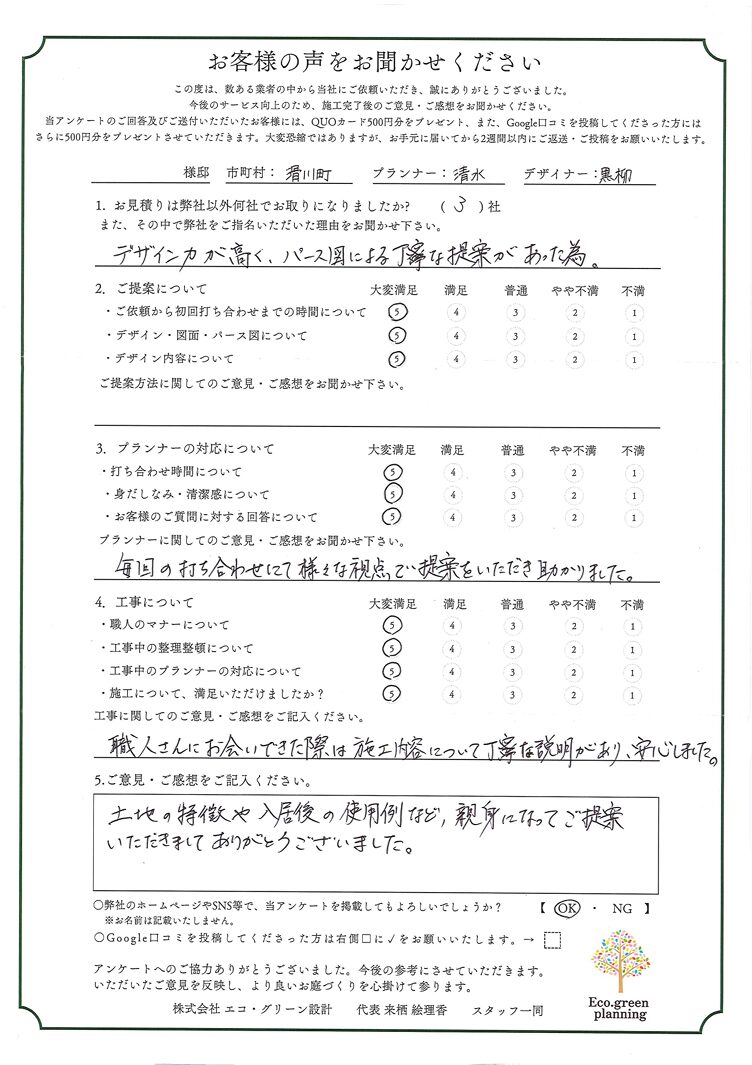 お客様の声をお聞かせください
この度は、数ある業者の中から当社にご依頼いただき、誠にありがとうございました。
今後のサービス向上のため、施工完了後のご意見・ご感想をお聞かせください。
当アンケートのご回答及びご送付いただいたお客様には、QUOカード500円分をプレゼント、また、Google口コミを投稿してくださった方には
さらに500円分をプレゼントさせていただきます。大変恐縮ではありますが、お手元に届いてから2週間以内にご返送・ご投稿をお願いいたします。
様邸 市町村： 滑川町 プランナー：清水 デザイナー：黒柳
1. お見積りは弊社以外何社でお取りになりましたか? ( 3 )社
また、その中で弊社をご指名いただいた理由をお聞かせ下さい。
デザイン力が高く、パース図による丁寧な提案があった為。
2. ご提案について 大変満足 満足 普通 やや不満 不満
・ご依頼から初回打ち合わせまでの時間について 5 4 3 2 1
・デザイン・図面・パース図について 5 4 3 2 1
・デザイン内容について 5 4 3 2 1
ご提案方法に関してのご意見・ご感想をお聞かせ下さい。
3. プランナーの対応について 大変満足 満足 普通 やや不満 不満
・打ち合わせ時間について 5 4 3 2 1
・身だしなみ・清潔感について 5 4 3 2 1
・お客様のご質問に対する回答について 5 4 3 2 1
プランナーに関してのご意見・ご感想をお聞かせ下さい。
毎回の打ち合わせにて様々な視点で提案をいただき助かりました。
4. 工事について 大変満足 満足 普通 やや不満 不満
・職人のマナーについて 5 4 3 2 1
・工事中の整理整頓について 5 4 3 2 1
・工事中のプランナーの対応について 5 4 3 2 1
・施工について、満足いただけましたか？ 5 4 3 2 1
工事に関してのご意見・ご感想をご記入ください。
職人さんにお会いできた際は施工内容について丁寧な説明があり、安心しました。
5.ご意見・ご感想をご記入ください。
土地の特徴や入居後の使用例など、親身になってご提案
いただきまして ありがとうございました。
○弊社のホームページやSNS等で、当アンケートを掲載してもよろしいでしょうか？ 【 OK ・ NG 】
※お名前は記載いたしません。
○Google口コミを投稿してくださった方は右側□に✓をお願いいたします。→
アンケートへのご協力ありがとうございました。今後の参考にさせていただきます。
いただいたご意見を反映し、より良いお庭づくりを心掛けて参ります。
株式会社 エコ・グリーン設計 代表 来栖 絵理香 スタッフ一同
Eco.green
planning